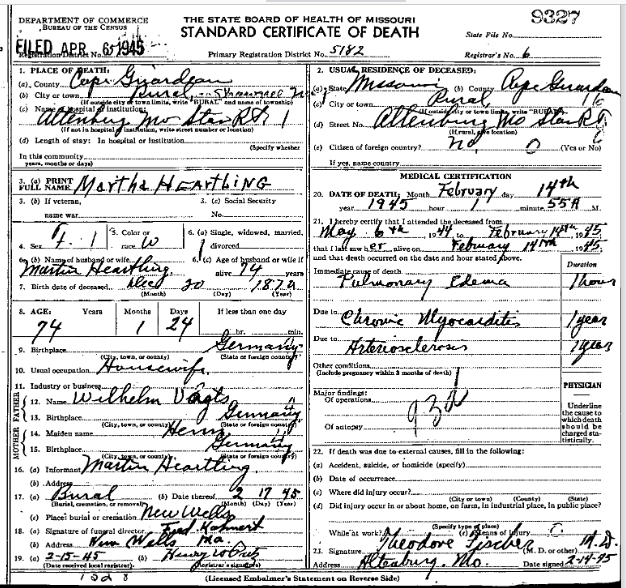 9327
DEPARTMENT OF COMMERCE
BUREAU OF THE CENSUS
THE STATE BOARD OF HEALTH OF MISSOURI
STANDARD CERTIFICATE OF DEATH
State File No.
FILED APR 6 1945
Registration District No.
Primary Registration District No. 5182
Registrar's No. 6
1. PLACE OF DEATH:
(a) County Cape Girardeau
(b) City or town Rural
(If outside city or town limits, write "RURAL" and name of township)
(c) Name of hospital or institution:
Altenburg Mo Star Rt 1
(If not in hospital or institution, write street number or location)
(d) Length of stay: In hospital or institution
(Specify whether
In this community
years, months or days)
2. USUAL RESIDENCE OF DECEASED:
(a) State Missouri (b) County Cape Girardeau
(c) City or town Rural
(If outside city or town limits, write "RURAL")
(d) Street No. Altenburg Mo Star Rt
(If rural, give location)
(e) Citizen of foreign country? no (Yes or No)
If yes, name country
3. (a) PRINT FULL NAME Martha HEARTLING
3. (b) If veteran, name war
3. (c) Social Security No.
4. Sex F. 5. Color or race W 6. (a) Single, widowed, married, divorced
6. (b) Name of husband or wife 6. (c) Age of husband or wife if
Martin Heartling alive 74 years
7. Birth date of deceased Dec 20
(Month) (Day) (Year)
8. AGE: Years Months Days If less than one day
74 1 24 hr. min.
9. Birthplace Germany
(City, town, or county) (State or foreign country)
10. Usual occupation Housewife
11. Industry or business
FATHER
12. Name Wilhelm Voigts
13. Birthplace Germany
(City, town, or county) (State or foreign country)
MOTHER
14. Maiden name
15. Birthplace Germany
(City, town, or county) (State or foreign country)
16. (a) Informant Martin Heartling
(b) Address
17. (a) Burial (b) Date thereof 2 17 45
(Burial, cremation, or removal) (Month) (Day) (Year)
(c) Place: burial or cremation New Wells
18. (a) Signature of funeral director Fred
(b) Address New Wells Mo.
19. (a) 2-15-45 (b) Henry
(Date received local registrar) (Registrar's signature)
MEDICAL CERTIFICATION
20. DATE OF DEATH: Month February day 14th
year 1945 hour 1 minute 55 A M.
21. I hereby certify that I attended the deceased from
May 6th 1944 to February 14th 1945
that I last saw her alive on February 14th 1945
and that death occurred on the date and hour stated above.
Duration
Immediate cause of death
Pulmonary Edema 1 hour
Due to Chronic Myocarditis 1 year
Due to Arteriosclerosis 1 year
Other conditions
(Include pregnancy within 3 months of death)
Major findings:
Of operations
Of autopsy
PHYSICIAN
Underline the cause to which death should be charged statistically.
22. If death was due to external causes, fill in the following:
(a) Accident, suicide, or homicide (specify)
(b) Date of occurrence
(c) Where did injury occur?
(City or town) (County) (State)
(d) Did injury occur in or about home, on farm, in industrial place, in public place?
(Specify type of place)
While at work? (e) Means of injury
23. Signature Theodore Fischer M.D.
(M. D. or other)
Address Altenburg, Mo. Date signed 2-14-45
(Licensed Embalmer's Statement on Reverse Side)